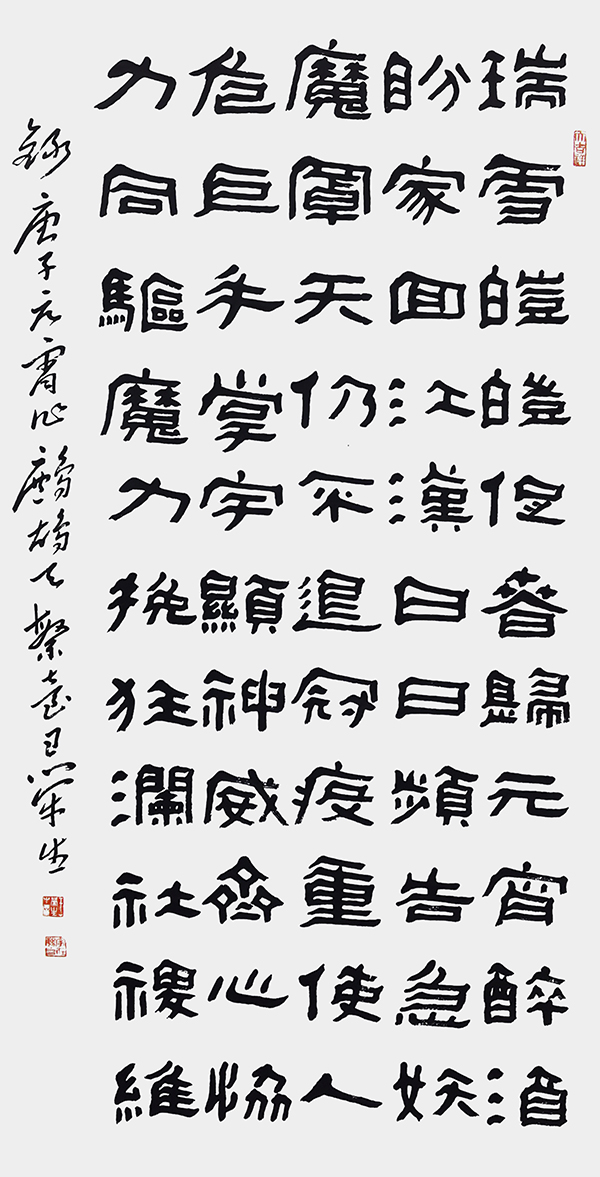 瑞雪皚皚促春歸元宵醉酒
盼家回江漢白日頻告急妖
魔罩天仍不退冠疫重使人
危巨手掌宇顯神威齊心協
力同驅魔力挽狂瀾社稷維
錄庚子元宵作鷓鴣天